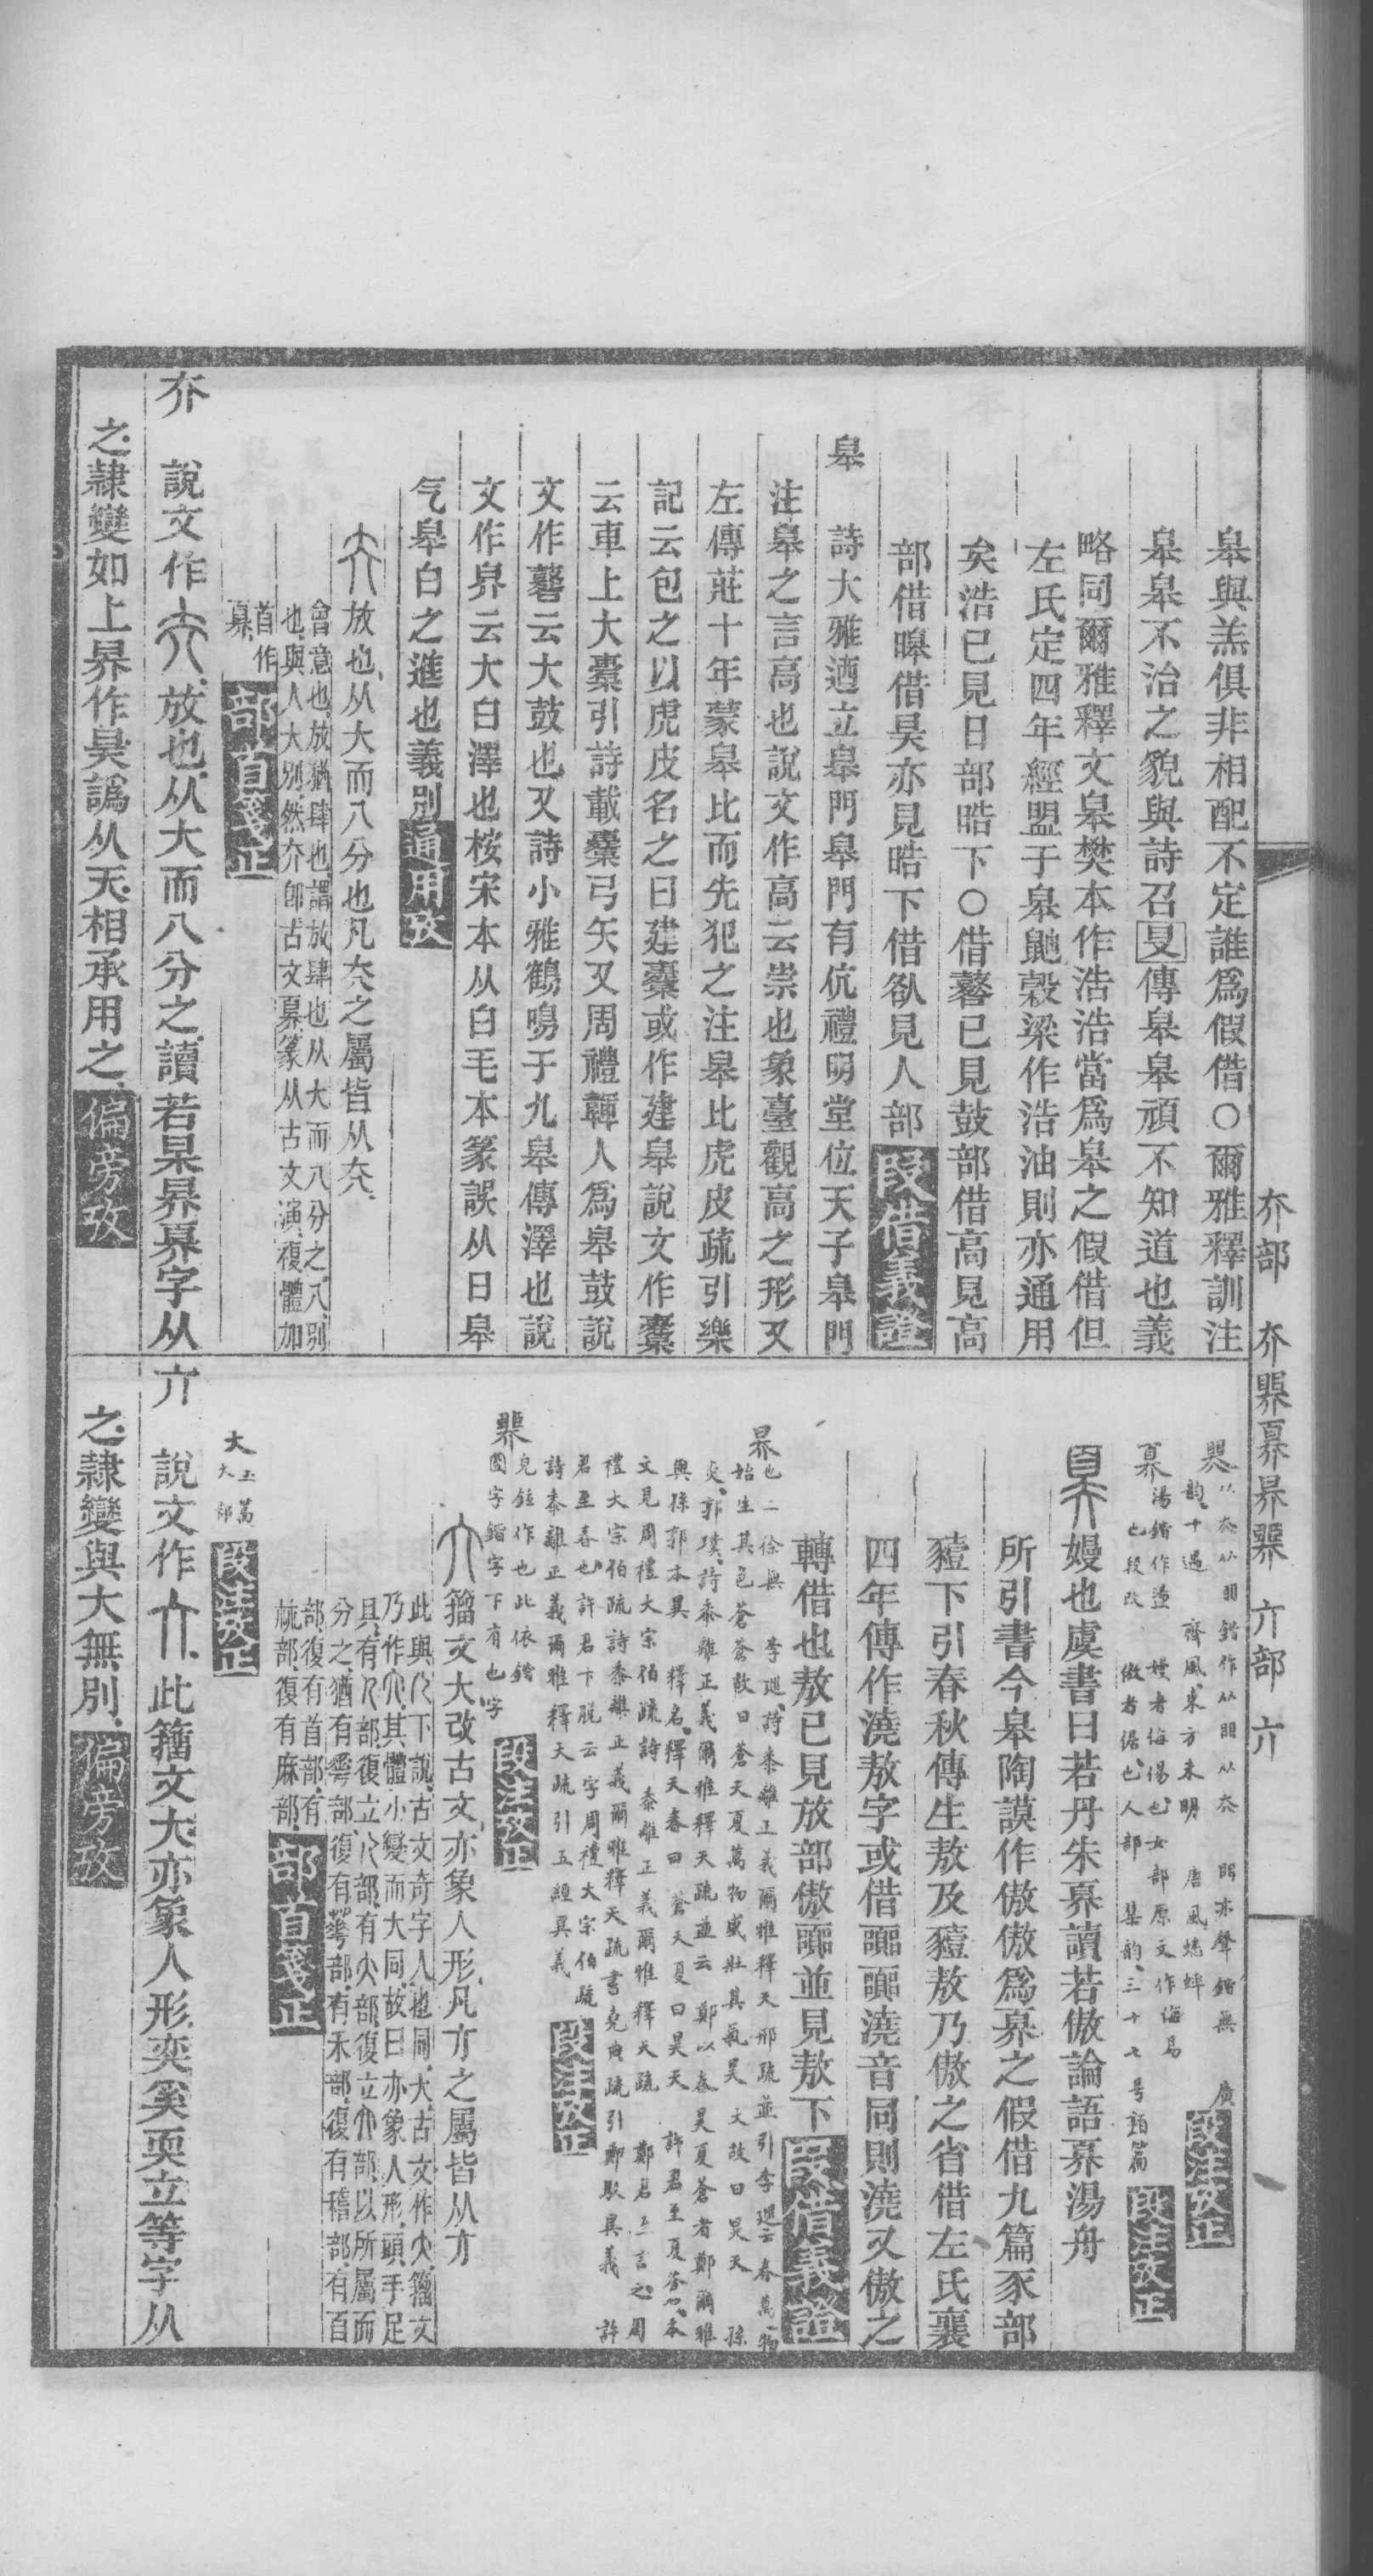 夰部　夰䀠奡昦𡚤　亣部　亣
皋與羔俱非相配不定誰爲假借○爾雅釋訓注
皋皋不治之貌與詩召旻傳皋皋頑不知道也義
略同爾雅釋文皋樊本作浩浩當爲皋之假借但
左氏定四年經盟于皋鼬穀梁作浩油則亦通用
矣浩已見日部晧下○借鼛已見鼓部借高見高
部借暤借昊亦見晧下借欿見人部段借義證
皋　詩大雅迺立皋門皋門有伉禮明堂位天子皋門
注皋之言高也說文作高云崇也象臺觀高之形又
左傳莊十年蒙皋比而先犯之注皋比虎皮疏引樂
記云包之以虎皮名之曰建櫜或作建皋說文作櫜
云車上大櫜引詩載櫜弓矢又周禮韗人爲皋鼓說
文作鼛云大鼓也又詩小雅鶴鳴于九皋傳澤也說
文作㚖云大白澤也桉宋本从白毛本篆誤从日皋
气皋白之進也義別通用攷
夰放也从大而八分也凡夰之屬皆从夰
會意也放猶肆也謂放肆也从大而八分之八別
也與人大別然夰卽古文奡篆从古文演複體加
首作
奡部首箋正
夰　說文作夰放也从大而八分之讀若杲昦奡字从
之隸變如上昦作昊譌从天相承用之偏旁攷
韵十遇　齊風東方未明　唐風蟋蟀　廣段注攷正
奡湯鍇作盪　嫚者侮㑥也女部原文作侮易
也段改　傲者倨也人部　集韵三十七号類篇段注攷正
奡嫚也虞書曰若丹朱奡讀若傲論語奡湯舟
所引書今皋陶謨作傲傲爲奡之假借九篇豕部
豷下引春秋傳生敖及豷敖乃傲之省借左氏襄
四年傳作澆敖字或借𩕳𩕳澆音同則澆又傲之
轉借也敖已見放部傲𩕳並見敖下段借義證
昦也二徐無　李巡詩黍離正義爾雅釋天邢疏並引李巡云春萬物
始生其色蒼蒼故曰蒼天夏萬物盛壯其氣昊大故曰昊天　孫
炎郭璞詩黍離正義爾雅釋天疏並云　鄭以春昊夏蒼者鄭爾雅
與孫郭本異　釋名釋天春曰蒼天夏曰昊天　許君至夏蒼也本
文見周禮大宗伯疏詩黍離正義爾雅釋天疏　鄭君至言之　周
禮大宗伯疏詩黍離正義爾雅釋天疏書堯典疏引鄭駁異義　許
君至春也許君下脫云字周禮大宗伯疏
詩黍離正義爾雅釋天疏引五經異義段注攷正
兒鉉作也此依鍇
圖字鍇字下有也字段注攷正
亣籀文大改古文亦象人形凡亣之屬皆从亣
此與儿下說古文奇字人也同大古文作大籀文
乃作亣其體小變而大同故曰亦象人形頭手足
具有人部復立儿部有大部復立亣部以所屬而
分之猶有𠌶部復有華部有禾部復有稽部有百
部復有首部有
𣏟部復有麻部部首箋正
大　玉篇
大部段注攷正
亣　說文作亣此籀文大亦象人形奕奚耎立等字从
之隸變與大無別偏旁攷